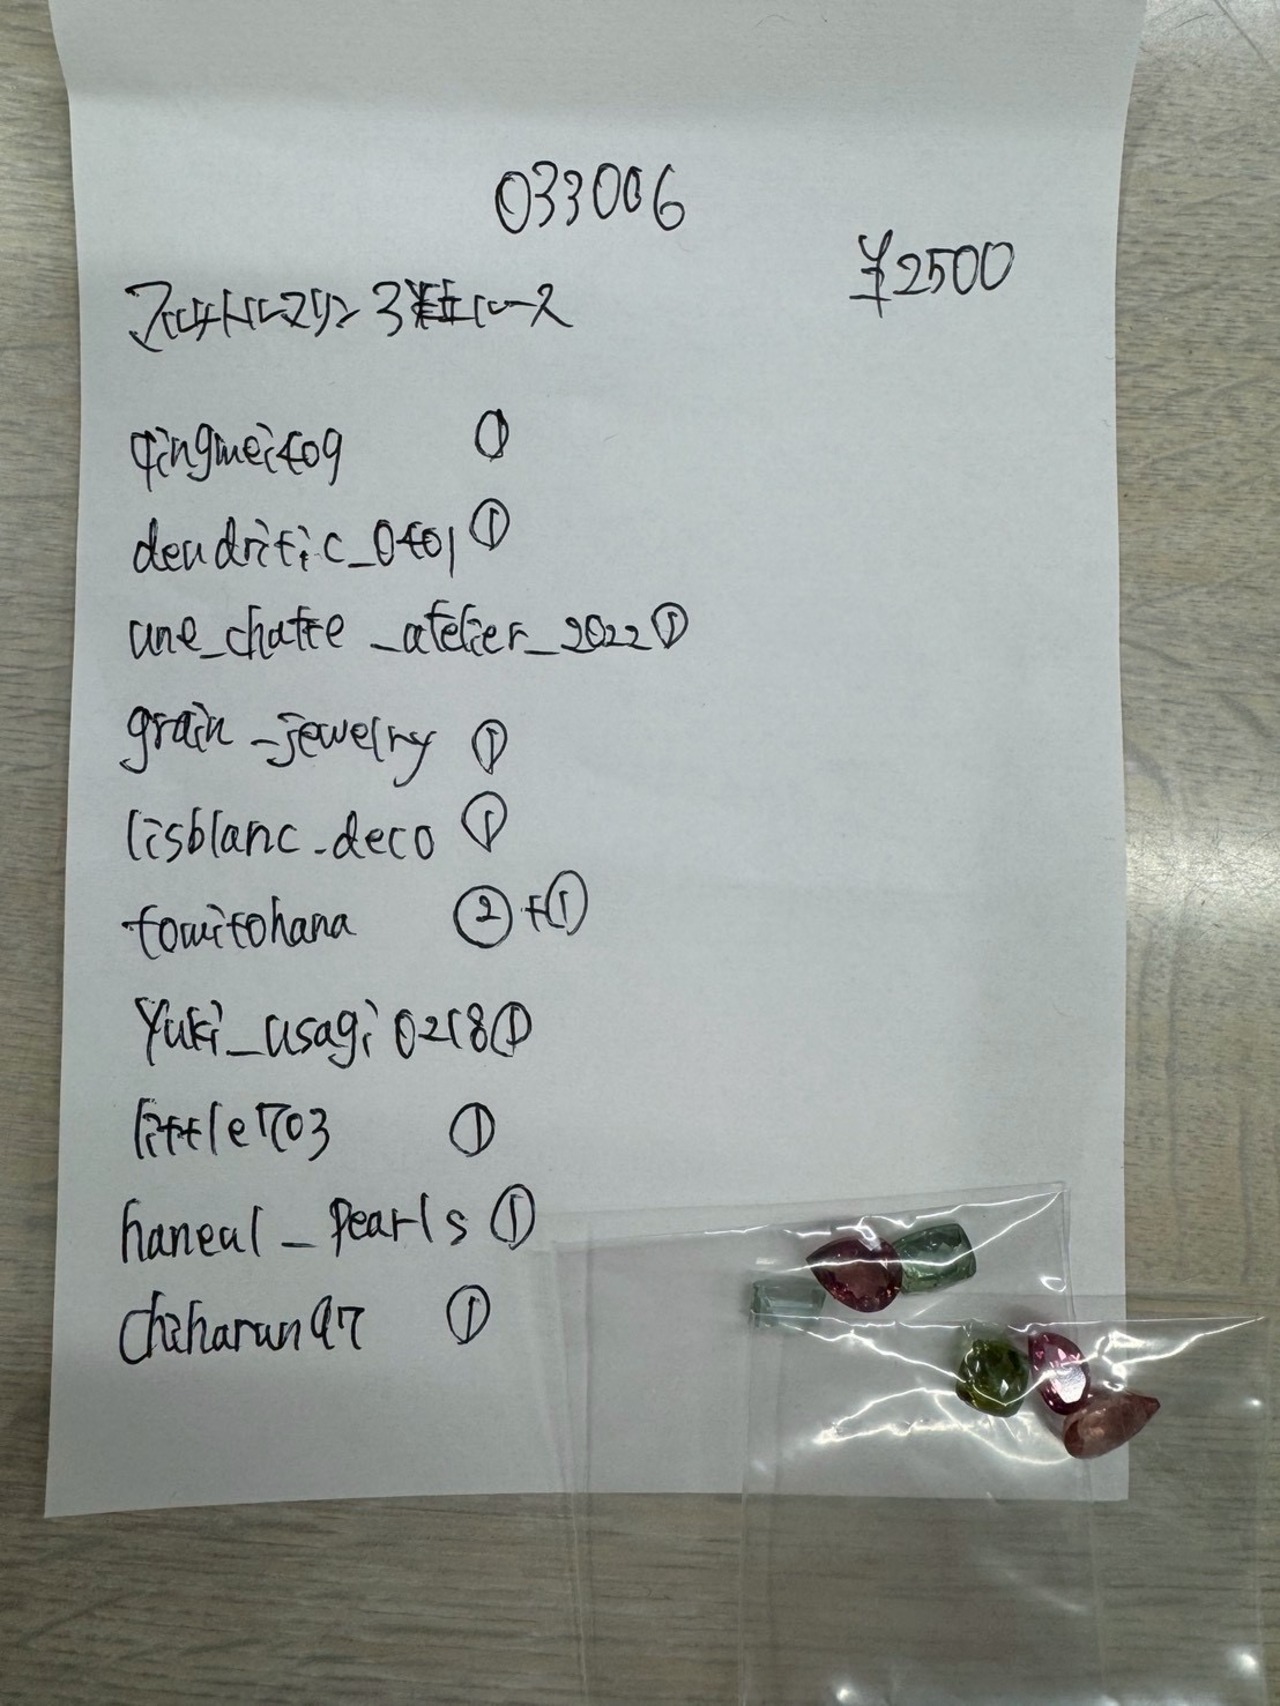 033006
¥2500
マルチトルマリン3粒ルース
qingmei409 ①
dendritic_0401 ①
une_chatte_atelier_2022 ①
grain_jewelry ①
lisblanc_deco ①
tomitohana ② + ①
Yuki_usagi0218 ①
little1703 ①
haneul_pearls ①
chiharun97 ①